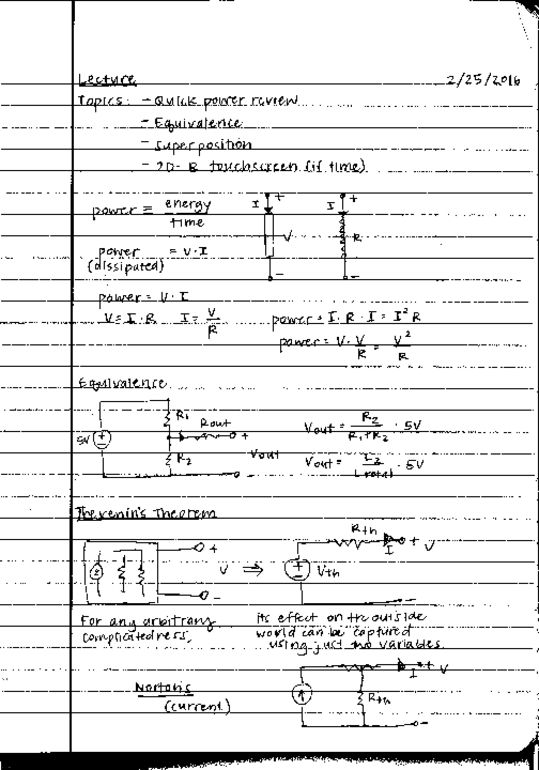 Lecture 2/25/2016
Topics: - Quick power review
- Equivalence
- superposition
- 2D-R touchscreen (if time)
power ≡ energy/time I + V -
I + R -
power (dissipated) = V·I
power = V·I
V = I·R I = V/R power = I·R·I = I²R
power = V·V/R = V²/R
Equivalence
5V R1 Rout + Vout = R2/(R1+R2) · 5V
R2 Vout - Vout = L2/Ltotal · 5V
Thevenin's Theorem
+ V - ⇒ Vth Rth I + V -
For any arbitrary its effect on the outside
complicatedness, world can be captured
using just two variables.
Norton's
(current) Rth I + V -